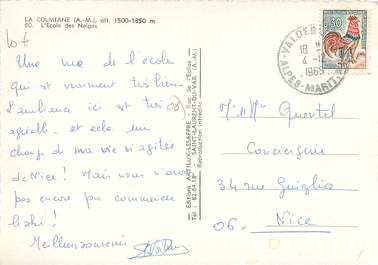 LA COLMIANE (A.-M.), alt. 1500-1850 m.
60. L'Ecole des Neiges
Une vue de l'école
qui est vraiment très bien.
L'ambiance ici est très
agréable. et cela me
change de ma vie si agitée
de Nice! Mais nous n'avons
pas encore pu commencer
le ski!
Meilleurs souvenirs
Editions
SAINT-LAURENT-DU-VAR (A.-M.)
Reproduction interdite
VALDEBLORE
18 H
4 -
1965
ALPES-MARITIMES
0,30
Mr Mme Quentel
Conciergerie
34 rue Guiglia
06. Nice